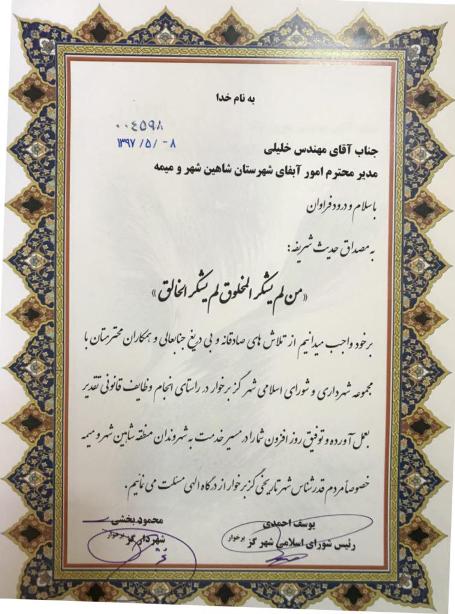 به نام خدا
۰۰٤۵۹۸
۱۳۹۷ /۵/ ۰۸
جناب آقای مهندس خلیلی
مدیر محترم امور آبفای شهرستان شاهین شهر و میمه
با سلام و درود فراوان
به مصداق حدیث شریفه:
«من لم یشکر المخلوق لم یشکر الخالق»
برخود واجب میدانیم از تلاش های صادقانه و بی دریغ جنابعالی و همکاران محترمتان با
مجموعه شهرداری و شورای اسلامی شهر گز برخوار در راستای انجام وظایف قانونی تقدیر
بعمل آورده و توفیق روز افزون شما را در مسیر خدمت به شهروندان منطقه شاهین شهر و میمه
خصوصاً مردم قدرشناس شهر تاریخی گز برخوار از درگاه الهی مسئلت می نمائیم.
یوسف احمدی
رئیس شورای اسلامی شهر گز برخوار
محمود بخشی
شهردار گز برخوار